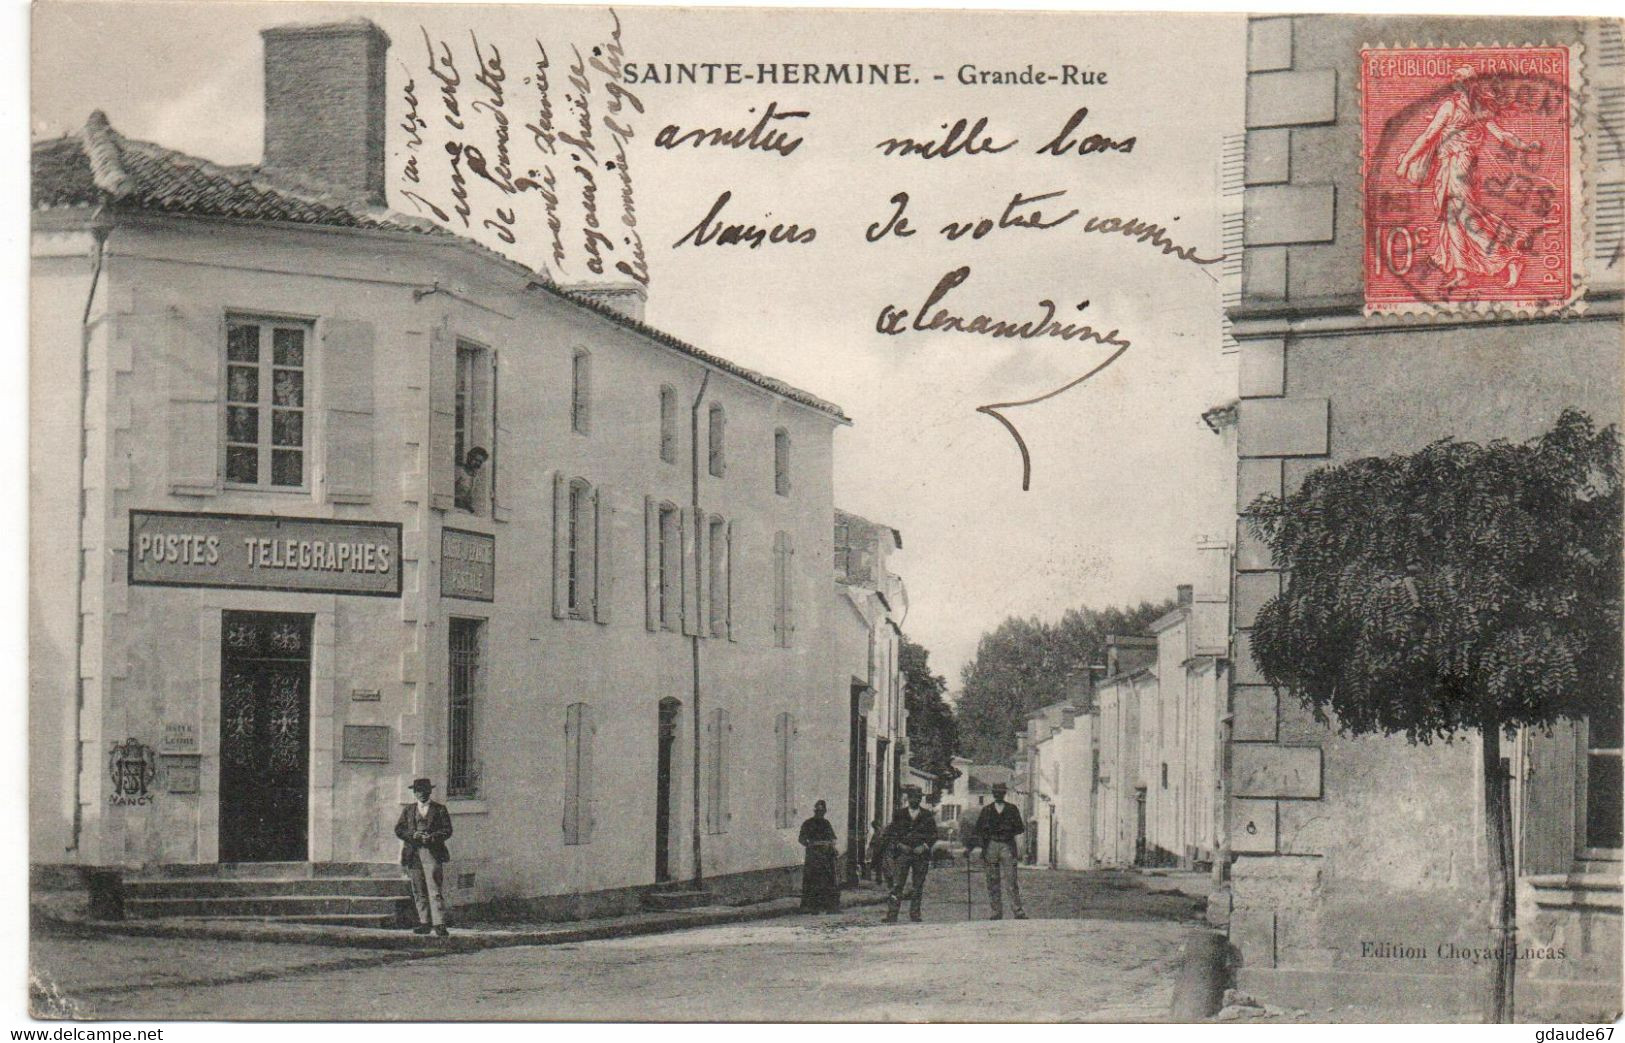 SAINTE-HERMINE. - Grande-Rue
j'ai reçu
une carte
de
mardi dernier
aujourd'hui
l'église
amitiés mille bons
baisers de votre cousine
alexandrine
REPUBLIQUE FRANÇAISE
10c
POSTES
POSTES TELEGRAPHES
POSTALE
NANCY
Edition Choyau-Lucas
Delcampe.net
gdaude67